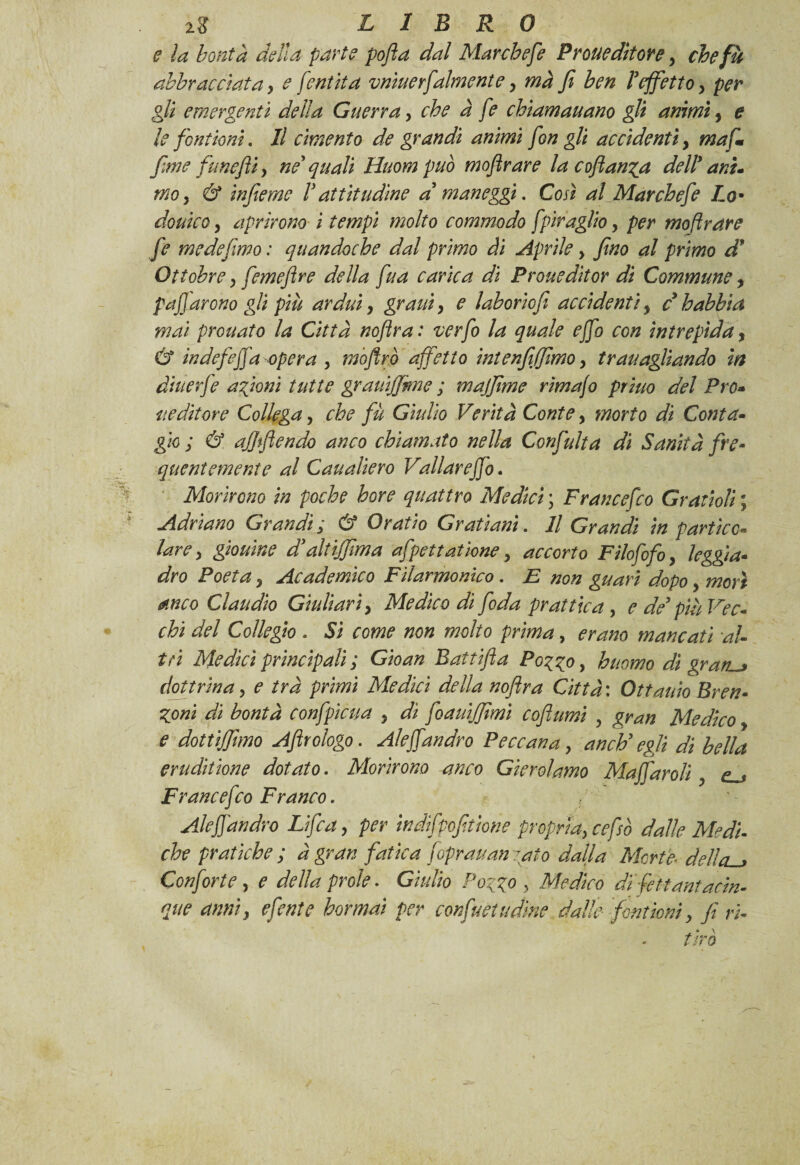 28 LIBRO
e la bontà della parte poſta dal Marcheſe Proueditore, che fù
abbracciata, e ſentita vniuerſalmente, mà ſi ben l'effetto, per
gli emergenti della Guerra, che à ſe chiamauano gli animi, e
le fontioni. Il cimento de grandi animi ſon gli accidenti, maſ-
ſime funeſti, ne' quali Huom può moſtrare la coſtanza dell' ani-
mo, & inſieme l'attitudine a' maneggi. Così al Marcheſe Lo-
douico, aprirono i tempi molto commodo ſpiraglio, per moſtrare
ſe medeſimo: quandoche dal primo di Aprile, ſino al primo d'
Ottobre, ſemeſtre della ſua carica di Proueditor di Commune,
paſſarono gli più ardui, graui, e laborioſi accidenti, c'habbia
mai prouato la Città noſtra: verſo la quale eſſo con intrepida,
& indefeſſa opera, moſtrò affetto intenſiſſimo, trauagliando in
diuerſe azioni tutte grauiſſime; maſſime rimaſo priuo del Pro-
ueditore Collega, che fù Giulio Verità Conte, morto di Conta-
gio; & aſſiſtendo anco chiamato nella Conſulta di Sanità fre-
quentemente al Caualiero Vallareſſo.
Morirono in poche hore quattro Medici; Franceſco Gratioli;
Adriano Grandi; & Oratio Gratiani. Il Grandi in partico-
lare, giouine d'altiſſima aſpettatione, accorto Filoſofo, leggia-
dro Poeta, Academico Filarmonico. E non guari dopo, morì
anco Claudio Giuliari, Medico di ſoda prattica, e de' più Vec-
chi del Collegio. Sì come non molto prima, erano mancati al-
tri Medici principali; Gioan Battiſta Pozzo, huomo di gran
dottrina, e trà primi Medici della noſtra Città: Ottauio Bren-
zoni di bontà conſpicua, di ſoauiſſimi coſtumi, gran Medico,
e dottiſſimo Aſtrologo. Aleſſandro Peccana, anch' egli di bella
eruditione dotato. Morirono anco Gierolamo Maſſaroli, e
Franceſco Franco.
Aleſſandro Liſca, per indiſpoſitione propria, ceſsò dalle Medi-
che pratiche; à gran fatica ſoprauanzato dalla Morte della
Conſorte, e della prole. Giulio Pozzo, Medico di ſettantacin-
que anni, eſente hormai per conſuetudine dalle fontioni, ſi ri-
tirò